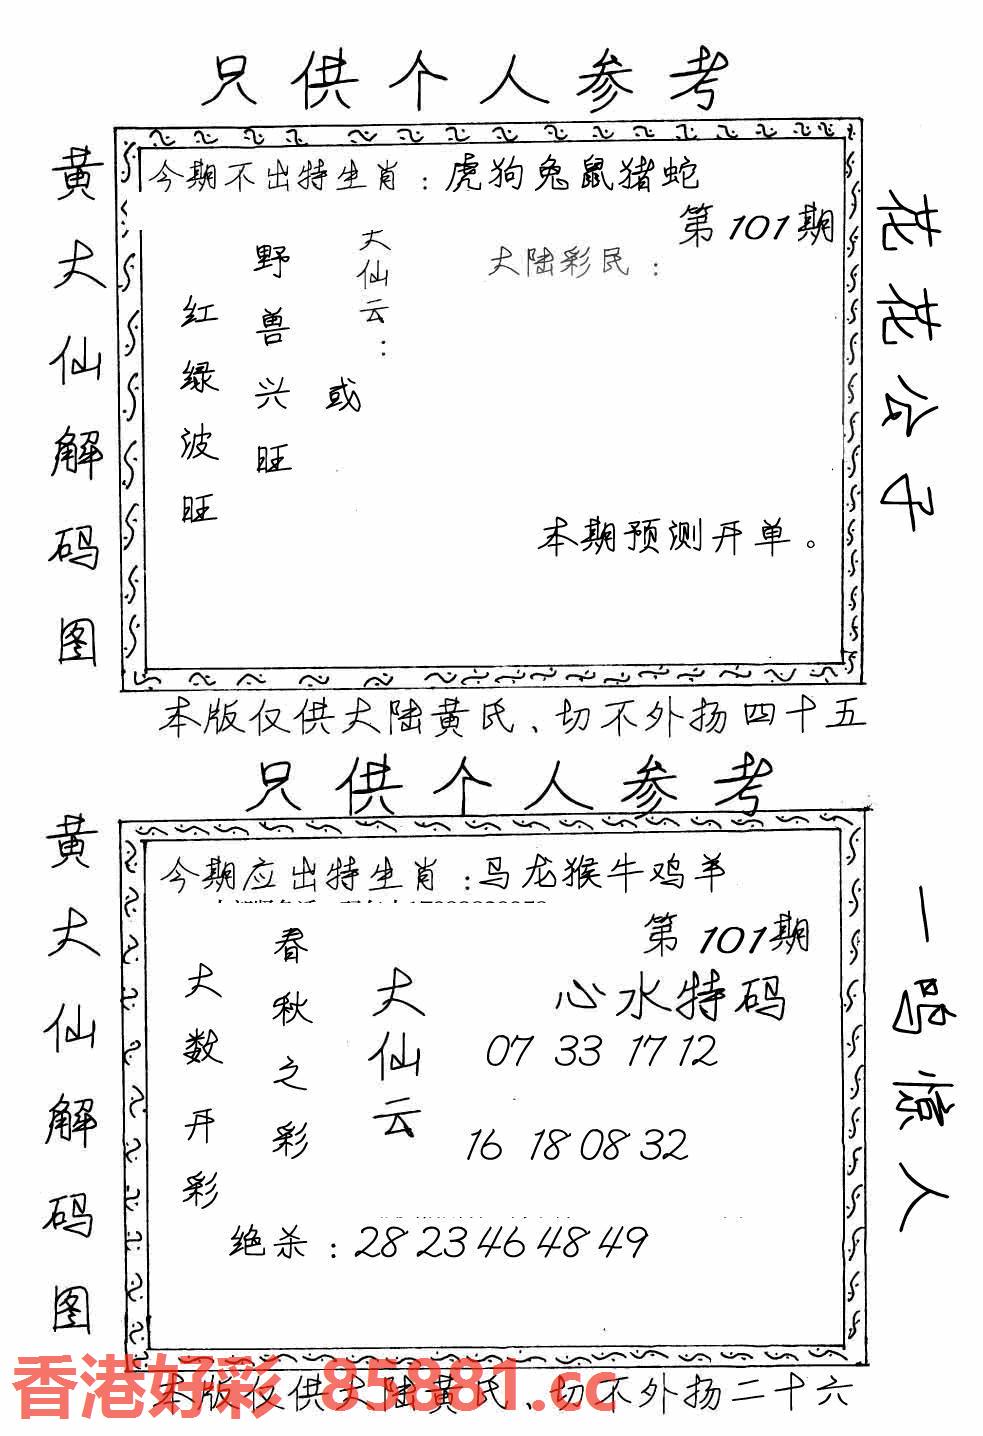 只供个人参考
黄大仙解码图
今期不出特生肖：虎狗兔鼠猪蛇
第101期
大陆彩民：
大仙云：
或
野兽兴旺
红绿波旺
本期预测开单。
花花公子
本版仅供大陆黄氏、切不外扬四十五
只供个人参考
黄大仙解码图
今期应出特生肖：马龙猴牛鸡羊
第101期
心水特码
07 33 17 12
16 18 08 32
大仙云
春秋之彩
大数开彩
绝杀：28 23 46 48 49
一鸣惊人
香港好彩 85881.cc
本版仅供大陆黄氏、切不外扬二十六